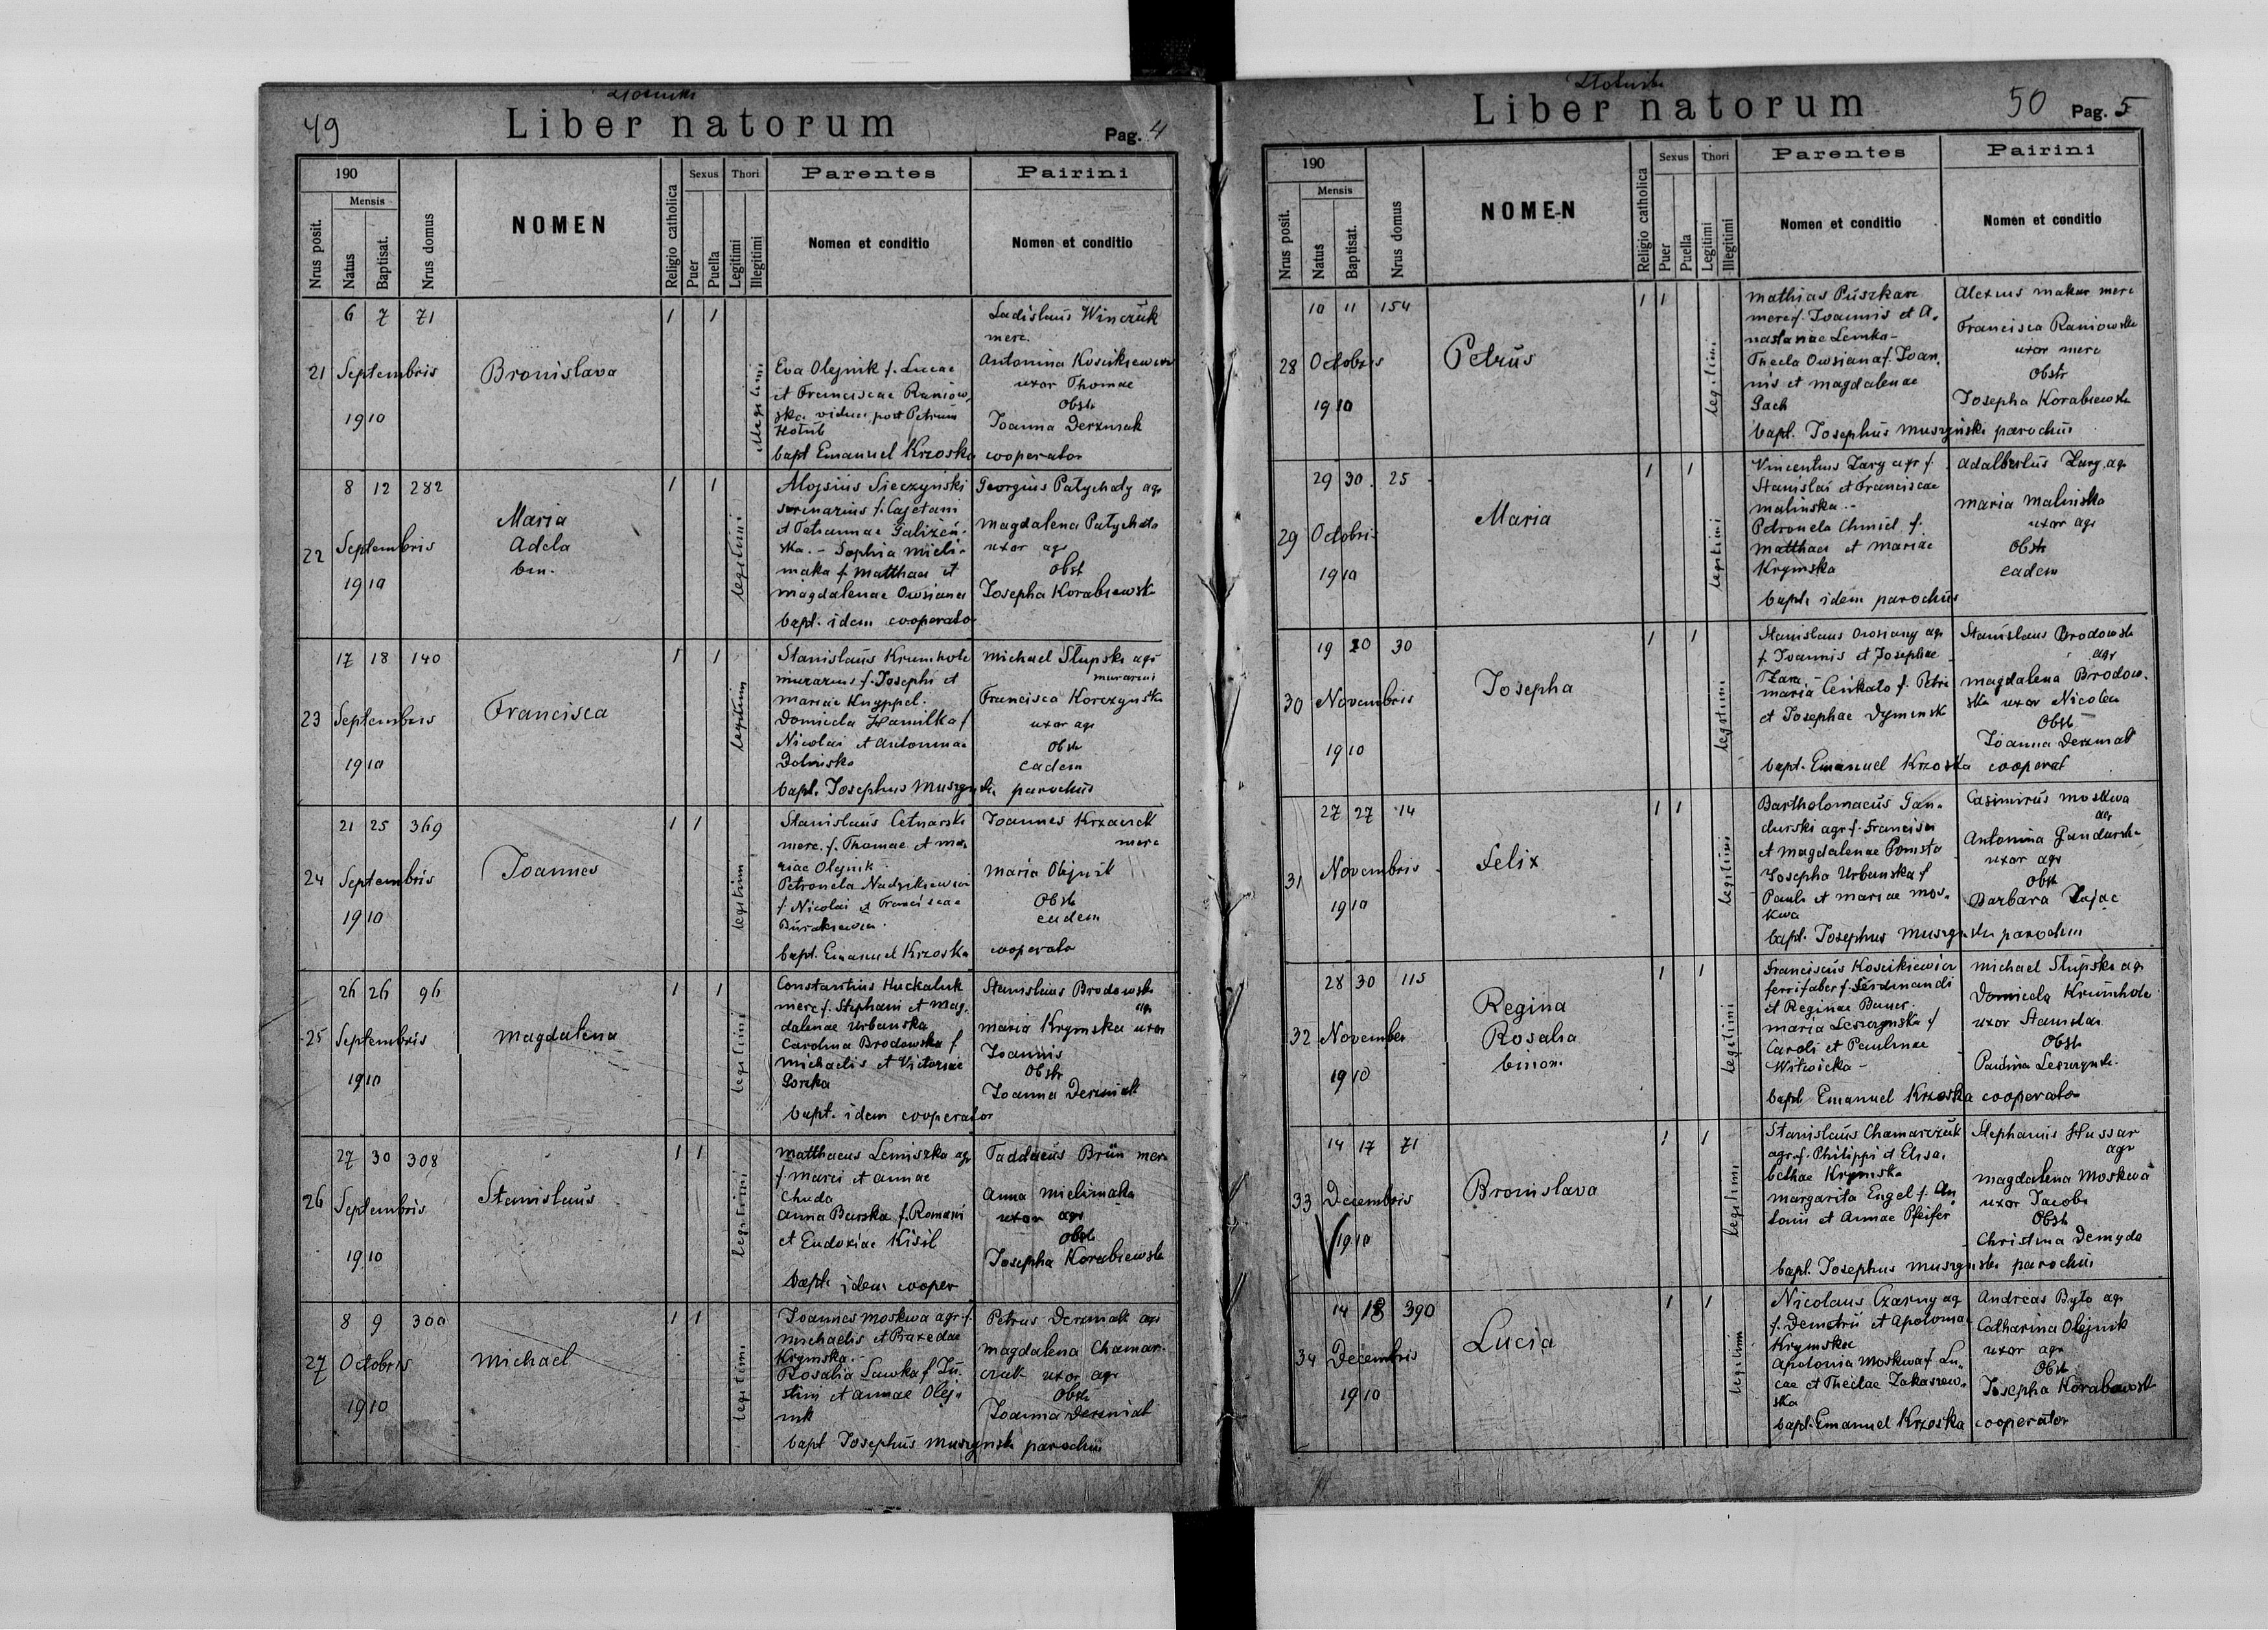 49
Liber natorum
Pag. 4
190
Nrus posit.
Mensis
Natus
Baptisat.
Nrus domus
NOMEN
Religio catholica
Sexus
Puer
Puella
Thori
Legitimi
Illegitimi
Parentes
Nomen et conditio
Pairini
Nomen et conditio
21
6 7 71
Septembris
1910
Bronislava
1 1
Illegitimi
Eva Olejnik f. Lucae
et Franciscae Raniow,
ska vidua post Petrum
Hotub
bapt Emanuel Krzoska cooperator
Ladislaus Winczuk
merc.
Antonina Koscikiewicz
uxor Thomae
Obst.
Joanna Derzniak
22
8 12 282
Septembris
1910
Maria
Adela
bin.
1 1
legitimi
Alojsius Sieczynski
f. Cajetani
et Tatiannae
ska. - Sophia Mieli-
maka f. Matthaei et
Magdalenae Owsiana
bapt. idem cooperator
Georgius Patychaty agr
Magdalena Patychata
uxor agr
Obst
Josepha Korabiewska
23
17 18 140
Septembris
1910
Francisca
1 1
legitimi
Stanislaus Krumholc
murarius f. Josephi et
Mariae Knyppel.
Domicela Hamilka f
Nicolai et Antoninae
Dolinska
bapt. Josephus Muszynski parochus
Michael Slupski agr
murarius
Francisca Korczynska
uxor agr
Obst
eadem
24
21 25 369
Septembris
1910
Joannes
1 1
legitimi
Stanislaus Cetnarski
merc. f. Thomae et Ma,
riae Olejnik
Petronela Nadzikiewicz
f. Nicolai et Franciscae
Burakiewicz.
bapt. Emanuel Krzoska cooperator
Joannes Krzaczek
merc
Maria Olejnik
Obst
eadem
25
26 26 96
Septembris
1910
Magdalena
1 1
legitimi
Constantius Huckaluk
merc f. Stephani et Mag,
dalenae Urbanska
Carolina Brodowska f
Michaelis et Victoriae
Gorzka
bapt. idem cooperator
Stanislaus Brodowski
agr
Maria Krymska uxor
Joannis
Obstr
Joanna Derzniak
26
27 30 308
Septembris
1910
Stanislaus
1 1
legitimi
Matthaeus Lemiszka agr
f. Marci et Annae
Chuda
Anna Burska f. Romani
et Eudoxiae Kisil
bapt. idem cooper
Taddaeus Brün merc
Anna Mielimaka
uxor agr
Obst
Josepha Korabiewska
27
8 9 300
Octobris
1910
Michael
1 1
legitimi
Joannes Moskwa agr f.
Michaelis et Praxedae
Krymska.
Rosalia Sawka f. Ju,
stini et Annae Olej,
nik
bapt Josephus Muszynski parochus
Petrus Derzniak agr
Magdalena Chamar-
czuk uxor agr
Obst
Joanna Derzniak
Liber natorum
50
Pag. 5
190
Nrus posit.
Mensis
Natus
Baptisat.
Nrus domus
NOMEN
Religio catholica
Sexus
Puer
Puella
Thori
Legitimi
Illegitimi
Parentes
Nomen et conditio
Pairini
Nomen et conditio
28
10 11 154
Octobris
1910
Petrus
1 1
legitimi
Mathias Puszkarz
merc f. Joannis et A,
nastasiae Lemka-
Thecla Owsiana f. Joan,
nis et Magdalenae
Gach
bapt. Josephus Muszynski parochus
Alexius Makar merc
Francisca Raniowska
uxor merc
Obstr
Josepha Korabiewska
29
29 30 25
Octobris
1910
Maria
1 1
legitimi
Vincentius Zarg agr f.
Stanislai et Franciscae
Malinska -
Petronela Chmiel f.
Matthaei et Mariae
Krymska
bapt. idem parochus
Adalbertus Zarg agr
Maria Malinska
uxor agr
Obstr
eadem
30
19 20 30
Novembris
1910
Josepha
1 1
legitimi
Stanislaus Owsiany agr
f. Joannis et Josephae
Maria Cenkalo f. Petri
et Josephae Dyminsk
bapt. Emanuel Krzoska cooperat
Stanislaus Brodowski
agr
Magdalena Brodow,
ska uxor Nicolai
Obst
Joanna Derzniak
31
27 27 14
Novembris
1910
Felix
1 1
legitimi
Bartholomaeus Gan-
durski agr f. Francisci
et Magdalenae Ponista
Josepha Urbanska f
Pauli et Mariae Mos,
kwa
bapt. Josephus Muszynski parochus
Casimirus Moskwa
agr
Antonina Gandurska
uxor agr
Obst
Barbara Zajac
32
28 30 115
November
1910
Regina
Rosalia
binom.
1 1
legitimi
Franciscus Koscikiewicz
ferrifaber f. Ferdinandi
et Reginae Bauer.
Maria Leszczynska f
Caroli et Paulinae
Witwicka -
bapt Emanuel Krzoska cooperator
Michael Slupski agr
Domicela Krumholc
uxor Stanislai
Obst
Paulina Leszczynska
33
14 17 71
Decembris
1910
Bronislava
1 1
legitimi
Stanislaus Chamarczuk
agr. f. Philippi et Elisa,
bethae Krymska
Margarita Engel f. An,
tonii et Annae Pfeifer
bapt. Josephus Muszynski parochus
Stephanus Hussar
agr
Magdalena Moskwa
uxor Jacobi
Obst
Christina Demyda
34
14 18 390
Decembris
1910
Lucia
1 1
legitimi
Nicolaus Czarny agr
f. Demetrii et Apoloniae
Krymskae
Apolonia Moskwa f. Lu,
cae et Theclae Zakaszew,
ska
bapt. Emanuel Krzoska cooperator
Andreas Bylo agr
Catharina Olejnik
uxor agr
Obst
Josepha Korabiewska